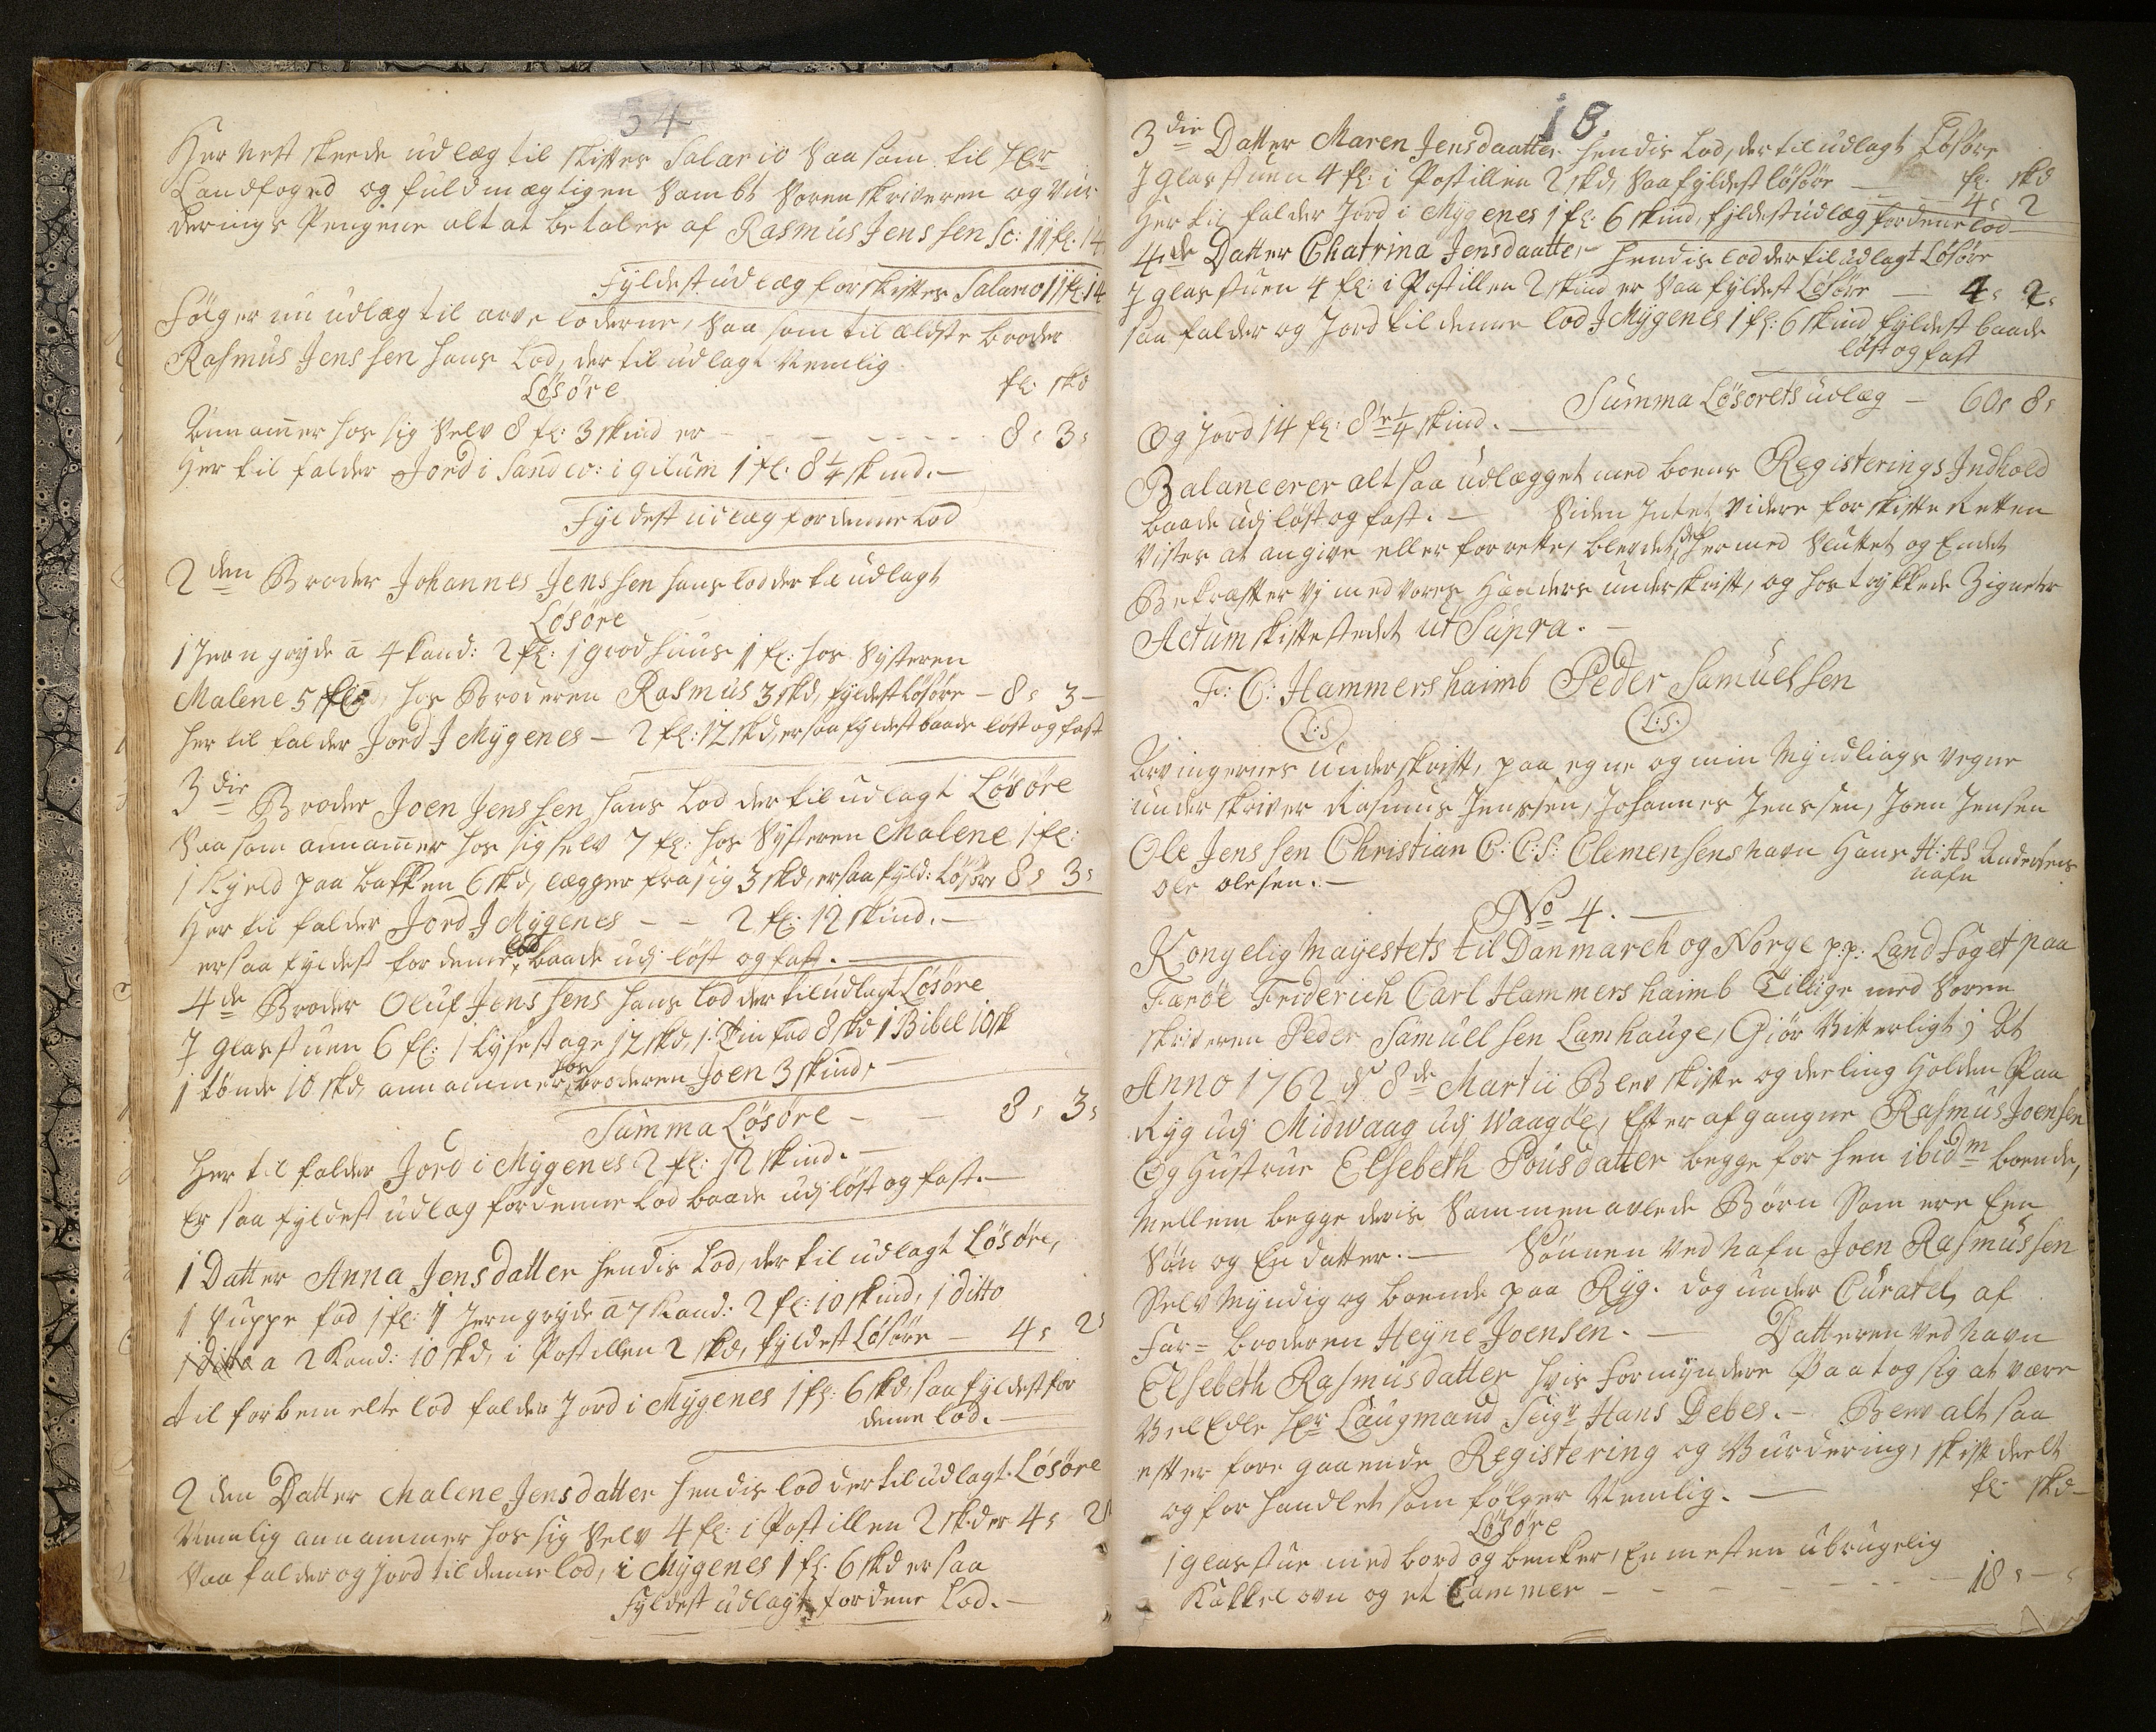 34
Her nest skeede udlæg til skiftes Salario saa som til Hr
Landfoged og fuldmægtigen sambt Sorenskriveren og Vur
derings Pengene alt at betales af Rasmus Jenssen Sc: 11 fl: 14
Fyldest udlæg for skiftes Salario 11 fl: 14
Følger nu udlæg til arve loderne, saa som til ældste broder
Rasmus Jenssen hans Lod, der til udlagt Nemlig
Løsøre fl: skd
Annam̅er hos sig selv 8 fl: 3 skind er - - - - - - 8 s 3 s
Her til falder Jord i Sandw: i gilum 1 fl: 8 ¼ skind. —
Fyldest udlæg for denne Lod
2 den Broder Johannes Jenssen hans lod der til udlagt
Løsøre
1 Jern gryde a 4 kand: 2 fl: 1 grod huus 1 fl: hos Systeren
Malene 5 fl: hos Broderen Rasmus 3 skd, fyldest Løsøre — 8 s 3 —
her til falder Jord J Mygenes — 2 fl: 12 skd, er saa fyldest baade løst og fast
3 die Broder Joen Jenssen hans Lod der til udlagt Løsøre
Saa som annam̅er hos sig selv 7 fl: hos Systeren Malene 1 fl:
1 Kjeld paa bakken 6 skd, lægger fra sig 3 skd, er saa fyld: Løsøre 8 s 3 s
Her til falder Jord J Mygenes - - 2 fl: 12 skind. —
er saa fyldest for denne lod baade udj løst og fast. —
4 de Broder Oluf Jenssens hans lod der til udlagt Løsøre
J glasstuen 6 fl: 1 Lysestage 12 skd, 1 Tin fad 8 skd 1 Bibel 10 sk
1 tønde 10 skd, annammer hos broderen Joen 3 skind, —
Summa Løsøre - - 8 s 3 s
Her til falder Jord i Mygenes 2 fl: 12 skind. —
Er saa fyldest udlæg for denne lod baade udj løst og fast. —
1 Datter Anna Jensdatter hendis Lod, der til udlagt Løsøre,
1 Suppe fad 1 fl: 1 Jerngryde a 7 kand: 2 fl: 10 skind, 1 ditto
1 ditto a 2 Kand: 10 skd, i Postillen 2 skd, fyldest Løsøre — 4 s 2 s
til forbemelte lod falder Jord i Mygenes 1 fl: 6 skd, saa fyldest for
denne lod. —
2 den Datter Malene Jensdatter hendis lod der til udlagt Løsøre
Nemlig annammer hos sig selv 4 fl: i Postillen 2 skd er 4 s 2 s
Saa falder og Jord til denne lod, i Mygenes 1 fl: 6 skd er saa
Fyldest udlagt for denne Lod. —
18.
3 die Datter Maren Jensdaatter hendis Lod, der til udlagt Løsøre
J glasstuen 4 fl: i Postillen 2 skd, saa fyldest løsøre — fl: skd
4 s 2
Her til falder Jord i Mygenes 1 fl: 6 skind, fyldest udlæg for denne lod
4 de Datter Chatrina Jensdaatter hendis lod der til udlagt Løsøre
J glasstuen 4 fl: i Postillen 2 skind er saa fyldest Løsøre — 4 s 2 s
saa falder og Jord til denne lod J Mygenes 1 fl: 6 skind fyldest baade
løst og fast
Summa Løsørets udlæg — 60 s 8 s
Og Jord 14 fl: 8 ¼ skind. —
Balancerer altsaa udlægget med boens Registerings Indhold
baade udj løst og fast. — Siden Intet videre for skifte Retten
vistes at angive eller forrette, blev det her med sluttet og Endet
Bekræfter vj med vores Hænders underskrift, og hostrykkede Zigneter
Actum skiftestedet ut Supra. —
F: C: Hammershaimb Peder Samuelsen
(L: S) (L: S.)
Arvingernes underskrift, paa egne og min Myndlings vegne
underskriver Rasmus Jenssen, Johannes Jenssen, Joen Jensen
Ole Jenssen Christian C. C: S: Clemensens havn Hans H: AS Andersens
nafn
Ole Olesen. —
No 4. —
Kongelig Mayestets til Danmarch og Norge p:p: Land foget paa
Færøe Friderich Carl Hammershaimb Tillige med Soren
skriveren Peder Samuelsen Lamhauge, Giør Vitterligt; At
Anno 1762 d 8 de Martii Blev skifte og deeling holden Paa
Ryg udj Midwaag udj Waagøe, Efter afgangne Rasmus Joensen
Og Hustrue Elsebeth Pousdatter begge for hen ibidm boende,
Mellem begge deris sammen avlede Børn Som ere Een
Søn og En datter. — Sønnen ved nafn Joen Rasmussen
Selv Myndig og boende paa Ryg. dog under Curatel, af
Far = broderen Heyne Joensen. — Datteren ved navn
Elsebeth Rasmusdatter hvis formyndere Paatog sig at være
VelEdle Hr Laugmand Seigr Hans Debes. — Blev altsaa
efter fore gaaende Registering og Vurdering, skift deelt
og forhandlet som følger Nemlig. — fl: skd —
Løsøre
1 glasstue med bord og benker, En mesten ubrugelig
Kakkelovn og et Cammer - - - - - - - 18 s - s